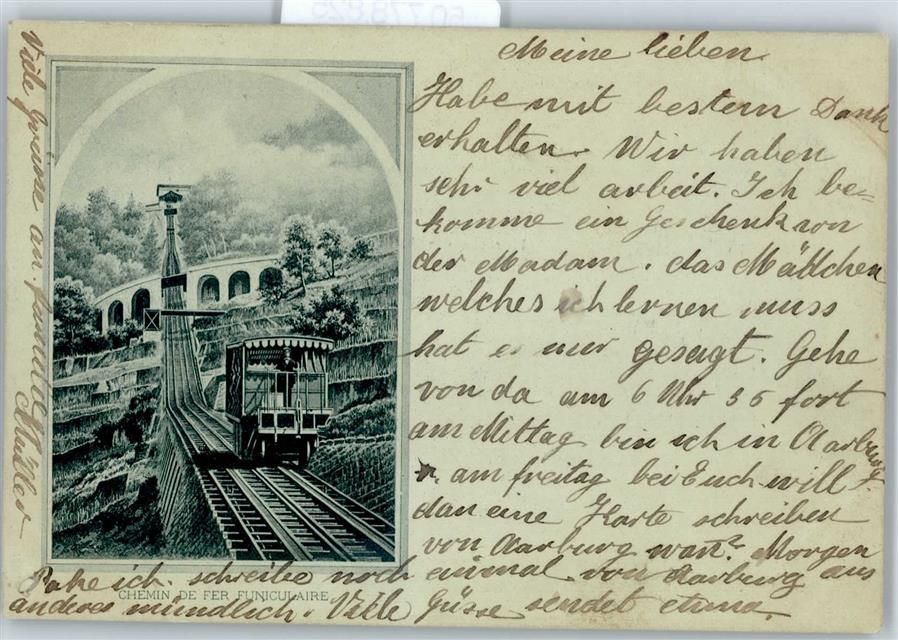 Meine lieben.
Habe mit bestem Dank
erhalten. Wir haben
sehr viel arbeit. Ich be=
komme ein Geschenk von
der Madam. das Mädchen
welches ich lernen muss
hat es mir gesagt. Gehe
von da am 6 Uhr 36 fort
am Mittag bin ich in Aarburg
am freitag bei Euch. will
dan eine Karte schreiben
von Aarburg wan? Morgen
ich. schreibe noch einmal von Aarburg aus
CHEMIN DE FER FUNICULAIRE
anderes mündlich. Viele Güsse sendet
Viele Grüsse an familie Müller